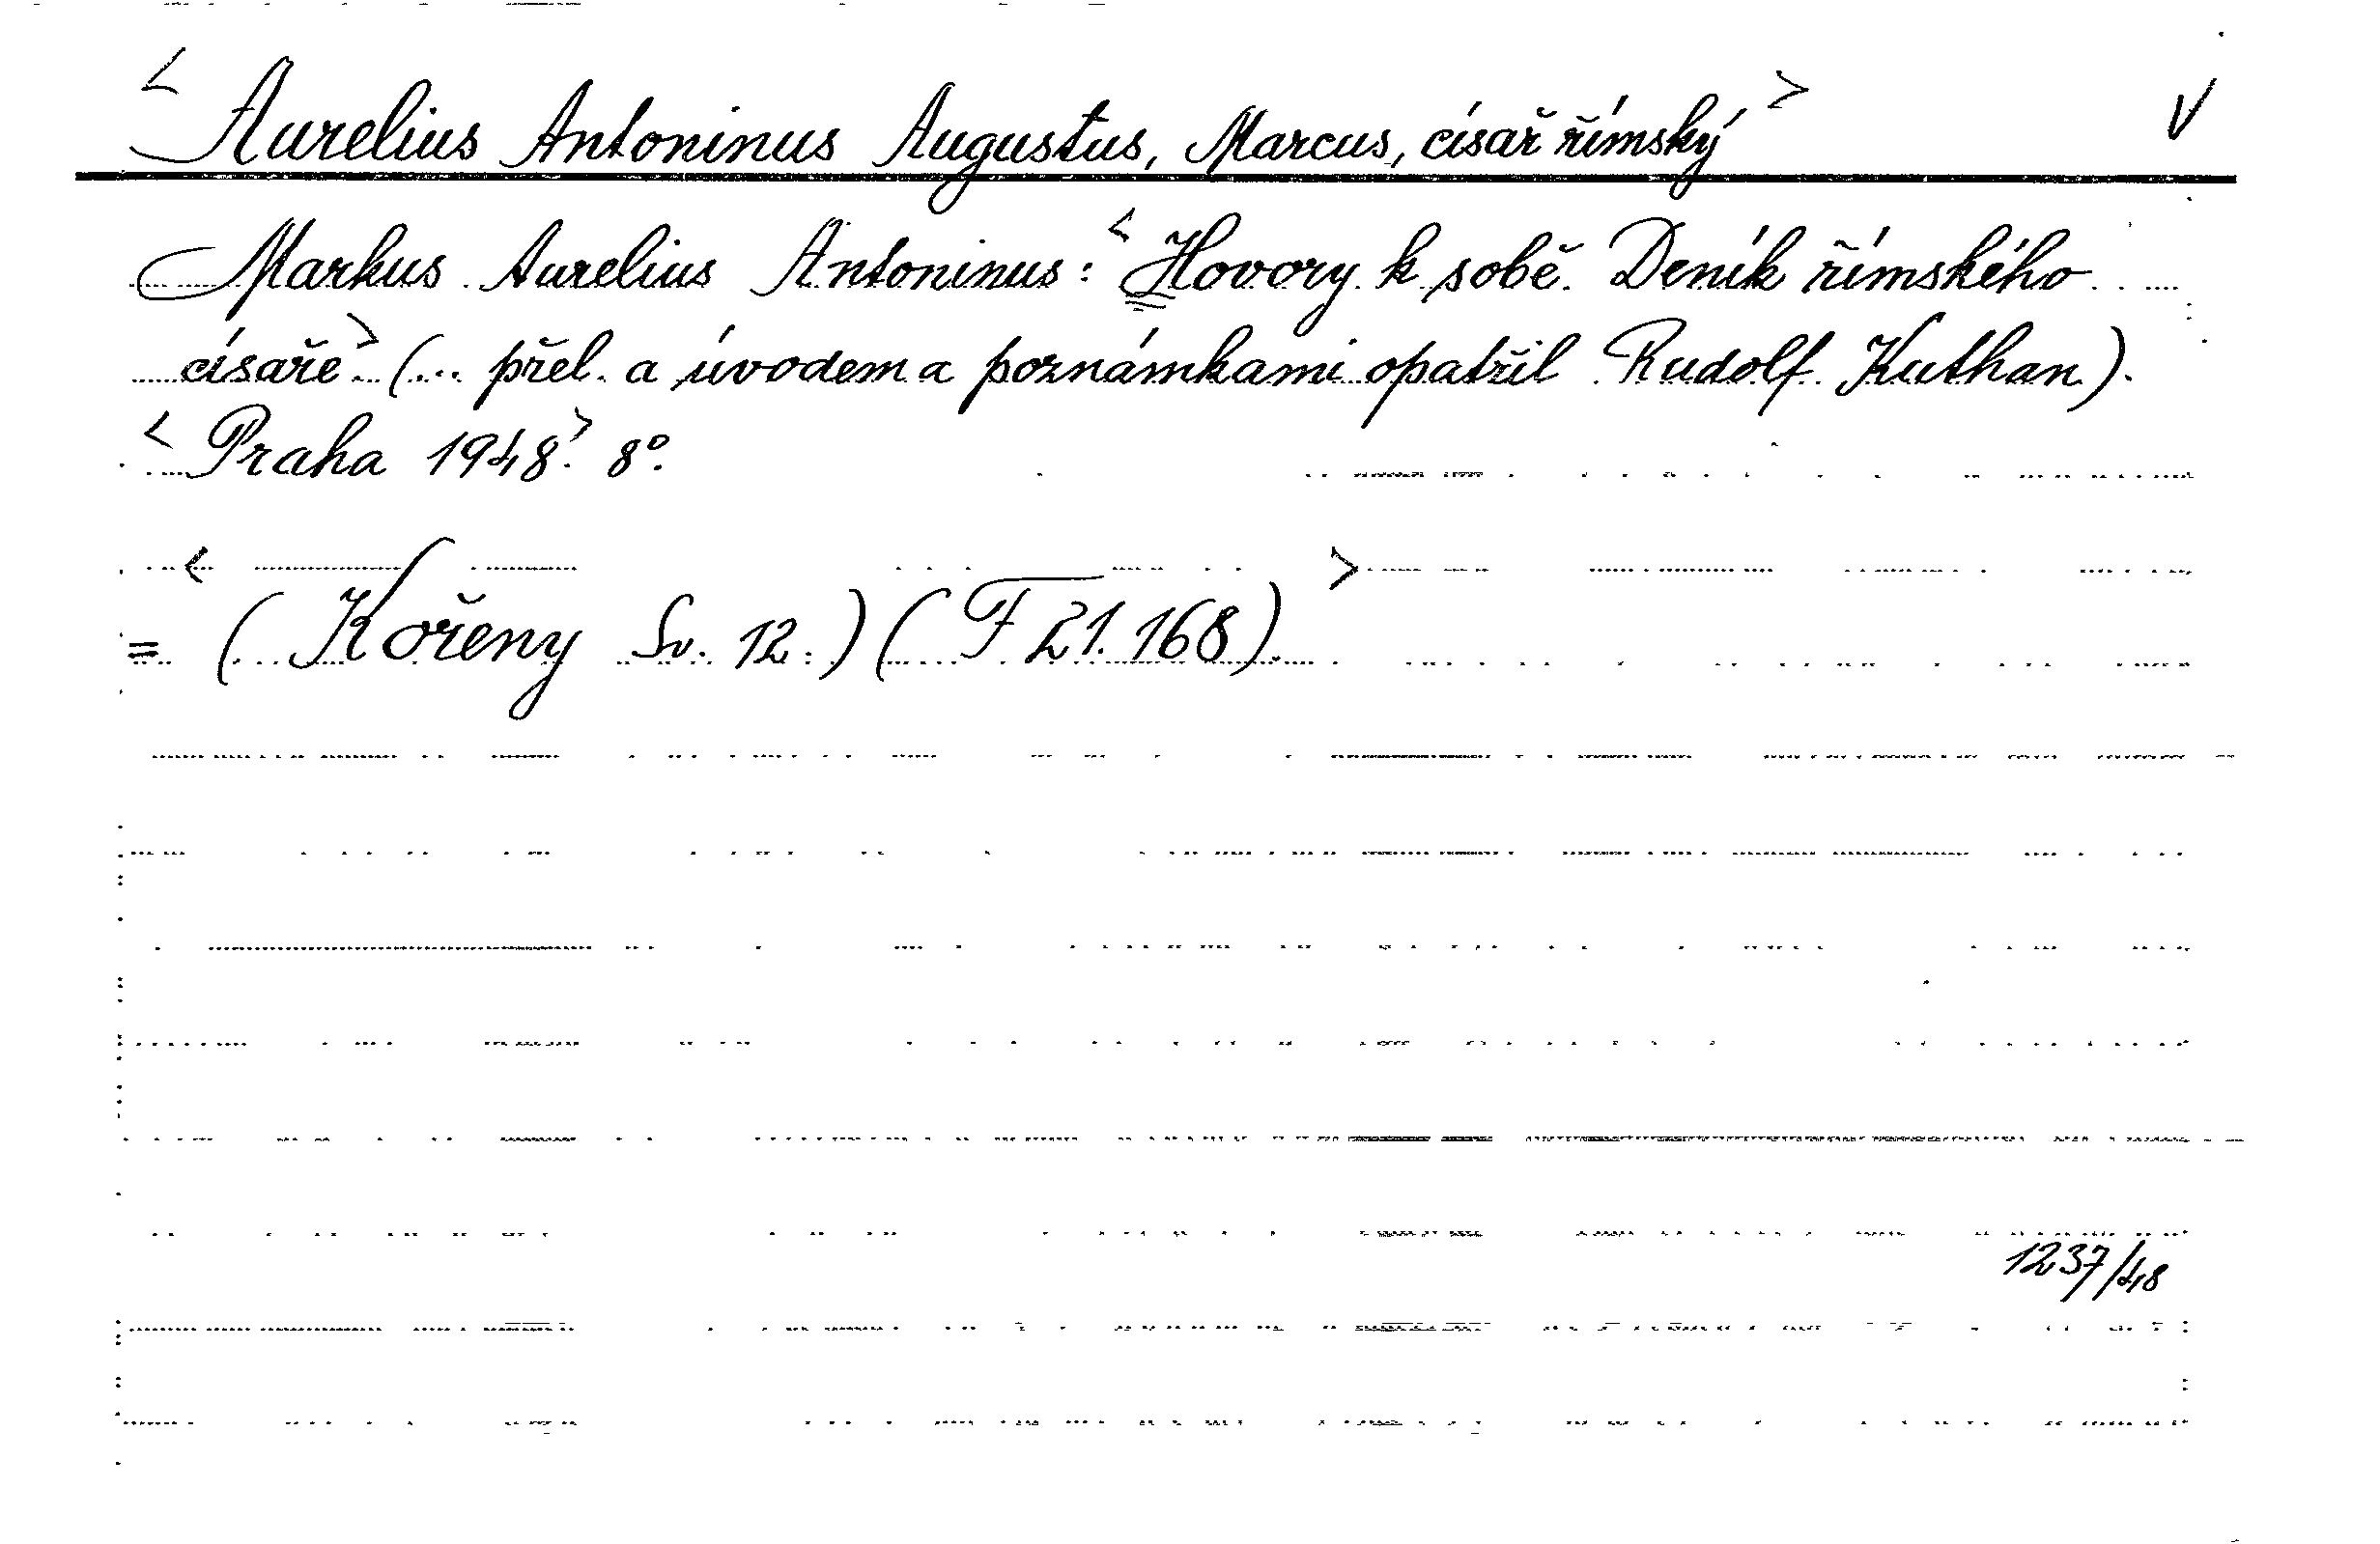 < Aurelius Antoninus Augustus, Marcus, císař římský > V
Markus Aurelius Antoninus: < Hovory k sobě. Deník římského
císaře > (... přel. a úvodem a poznámkami opatřil Rudolf Kuthan).
< Praha 1948. > 8°.
< = (Kořeny Sv. 12.) (F 21.168). >
1237/48